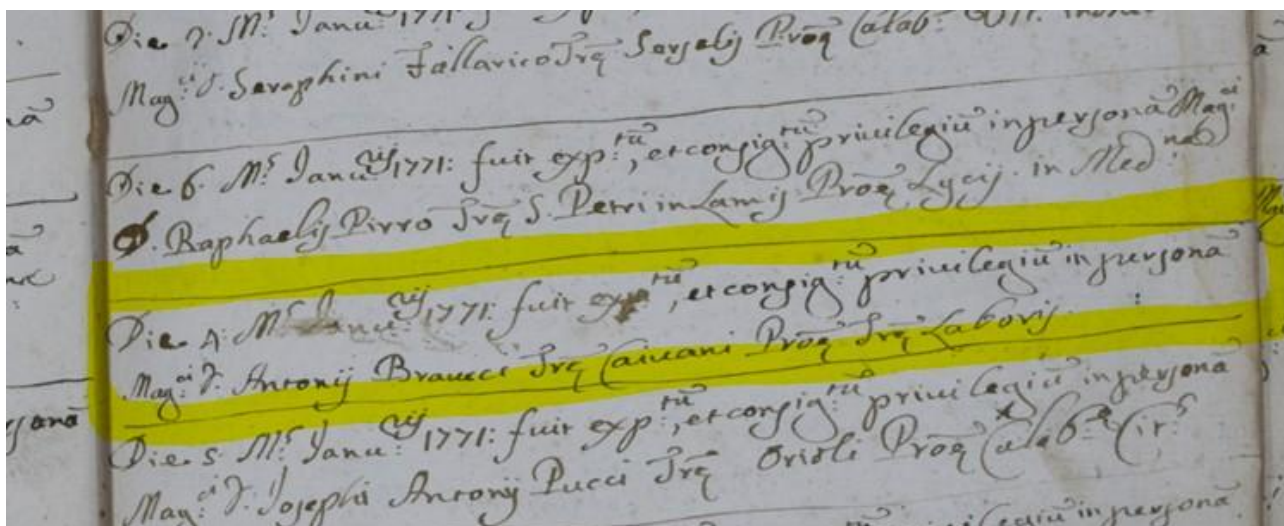 Die 7. M.s Janu.ij 1771: f
Mag.ci D. Seraphini Fallarico Tr̃ę Serselij Prõę Calab.
Die 6. M.s Janu.ij 1771: fuit exp.tũ, et consig.tũ privilegiũ in personã Mag.ci
D. Raphaelis Pirro Tr̃ę S. Petri in Lamis Prõę Lycij. in Med.na
Die 4. M.s Janu.ij 1771: fuit exp.tũ, et consig.tũ privilegiũ in personã
Mag.ci D. Antonij Braucci Tr̃ę Caivani Prõę Tr̃ę Laboris.
Die 5. M.s Janu.ij 1771: fuit exp.tũ, et consig.tũ privilegiũ in personã
Mag.ci D. Josephi Antonij Pucci Tr̃ę Orioli Prõę Calab.ę Cit.s
privilegiũ in personã